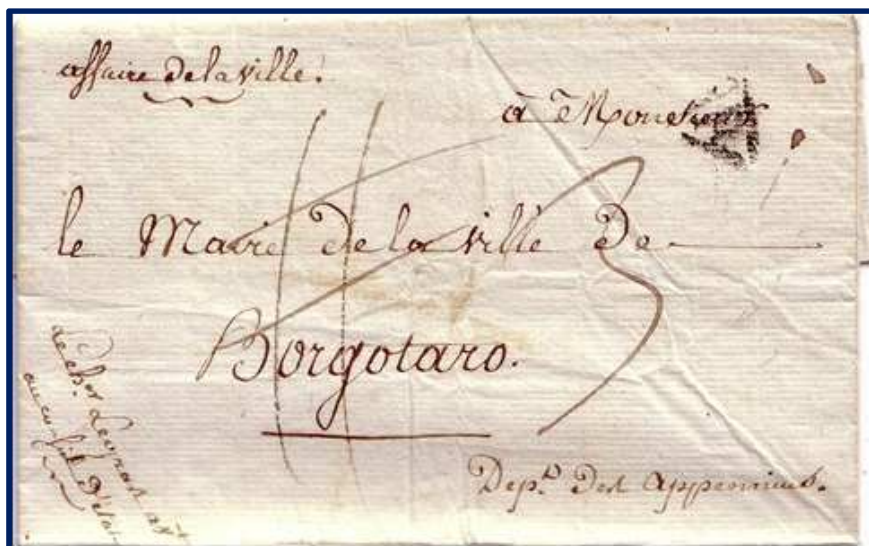 affaire de la ville.
à Monsieur
le Maire de la ville de
Borgotaro.
Dep.^t des appennins.